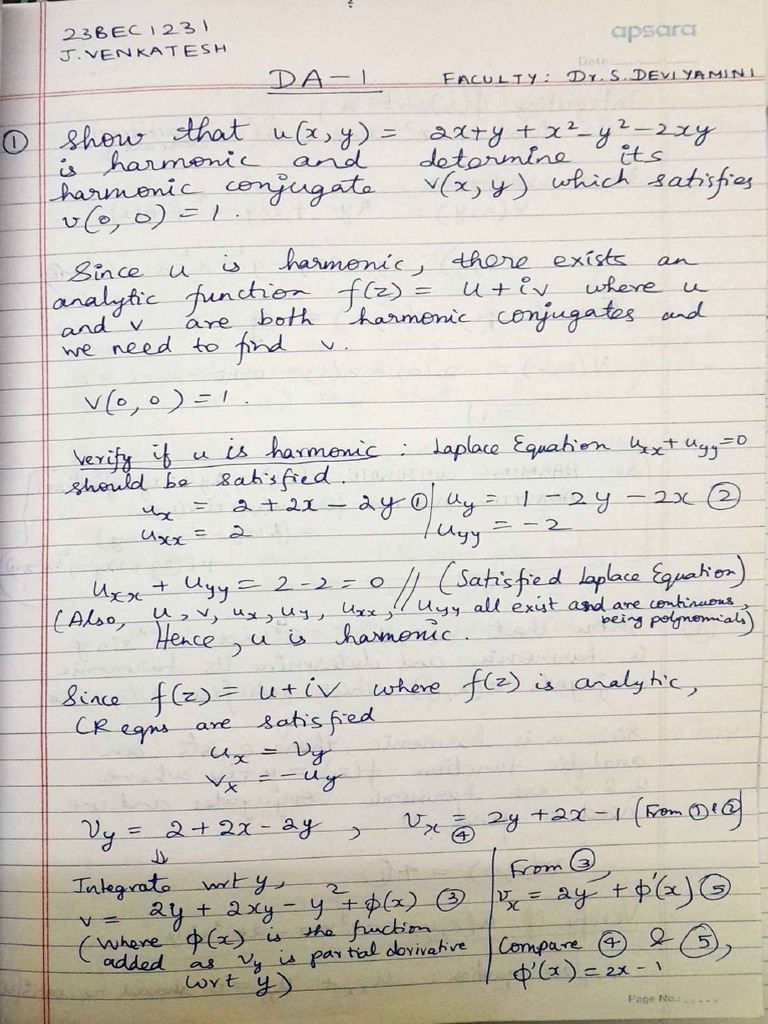 23BEC1231
J. VENKATESH
apsara
Date
DA-1
FACULTY: Dr. S. DEVI YAMINI
① Show that u(x, y) = 2x+y + x² - y² - 2xy
is harmonic and determine its
harmonic conjugate v(x, y) which satisfies
v(0, 0) = 1.
Since u is harmonic, there exists an
analytic function f(z) = u + iv where u
and v are both harmonic conjugates and
we need to find v.
v(0, 0) = 1.
Verify if u is harmonic : Laplace Equation uxx + uyy = 0
should be satisfied.
ux = 2 + 2x - 2y ①
uxx = 2
uy = 1 - 2y - 2x ②
uyy = -2
uxx + uyy = 2 - 2 = 0 // (Satisfied Laplace Equation)
(Also, u, v, ux, uy, uxx, uyy all exist and are continuous,
being polynomials)
Hence, u is harmonic.
Since f(z) = u + iv where f(z) is analytic,
CR eqns are satisfied
ux = vy
vx = -uy
vy = 2 + 2x - 2y , vx = 2y + 2x - 1 (From ① & ②)
④
⇓
Integrate wrt y,
v = 2y + 2xy - y² + φ(x) ③
(where φ(x) is the function
added as vy is partial derivative
wrt y)
From ③,
vx = 2y + φ'(x) ⑤
Compare ④ & ⑤,
φ'(x) = 2x - 1
Page No.: